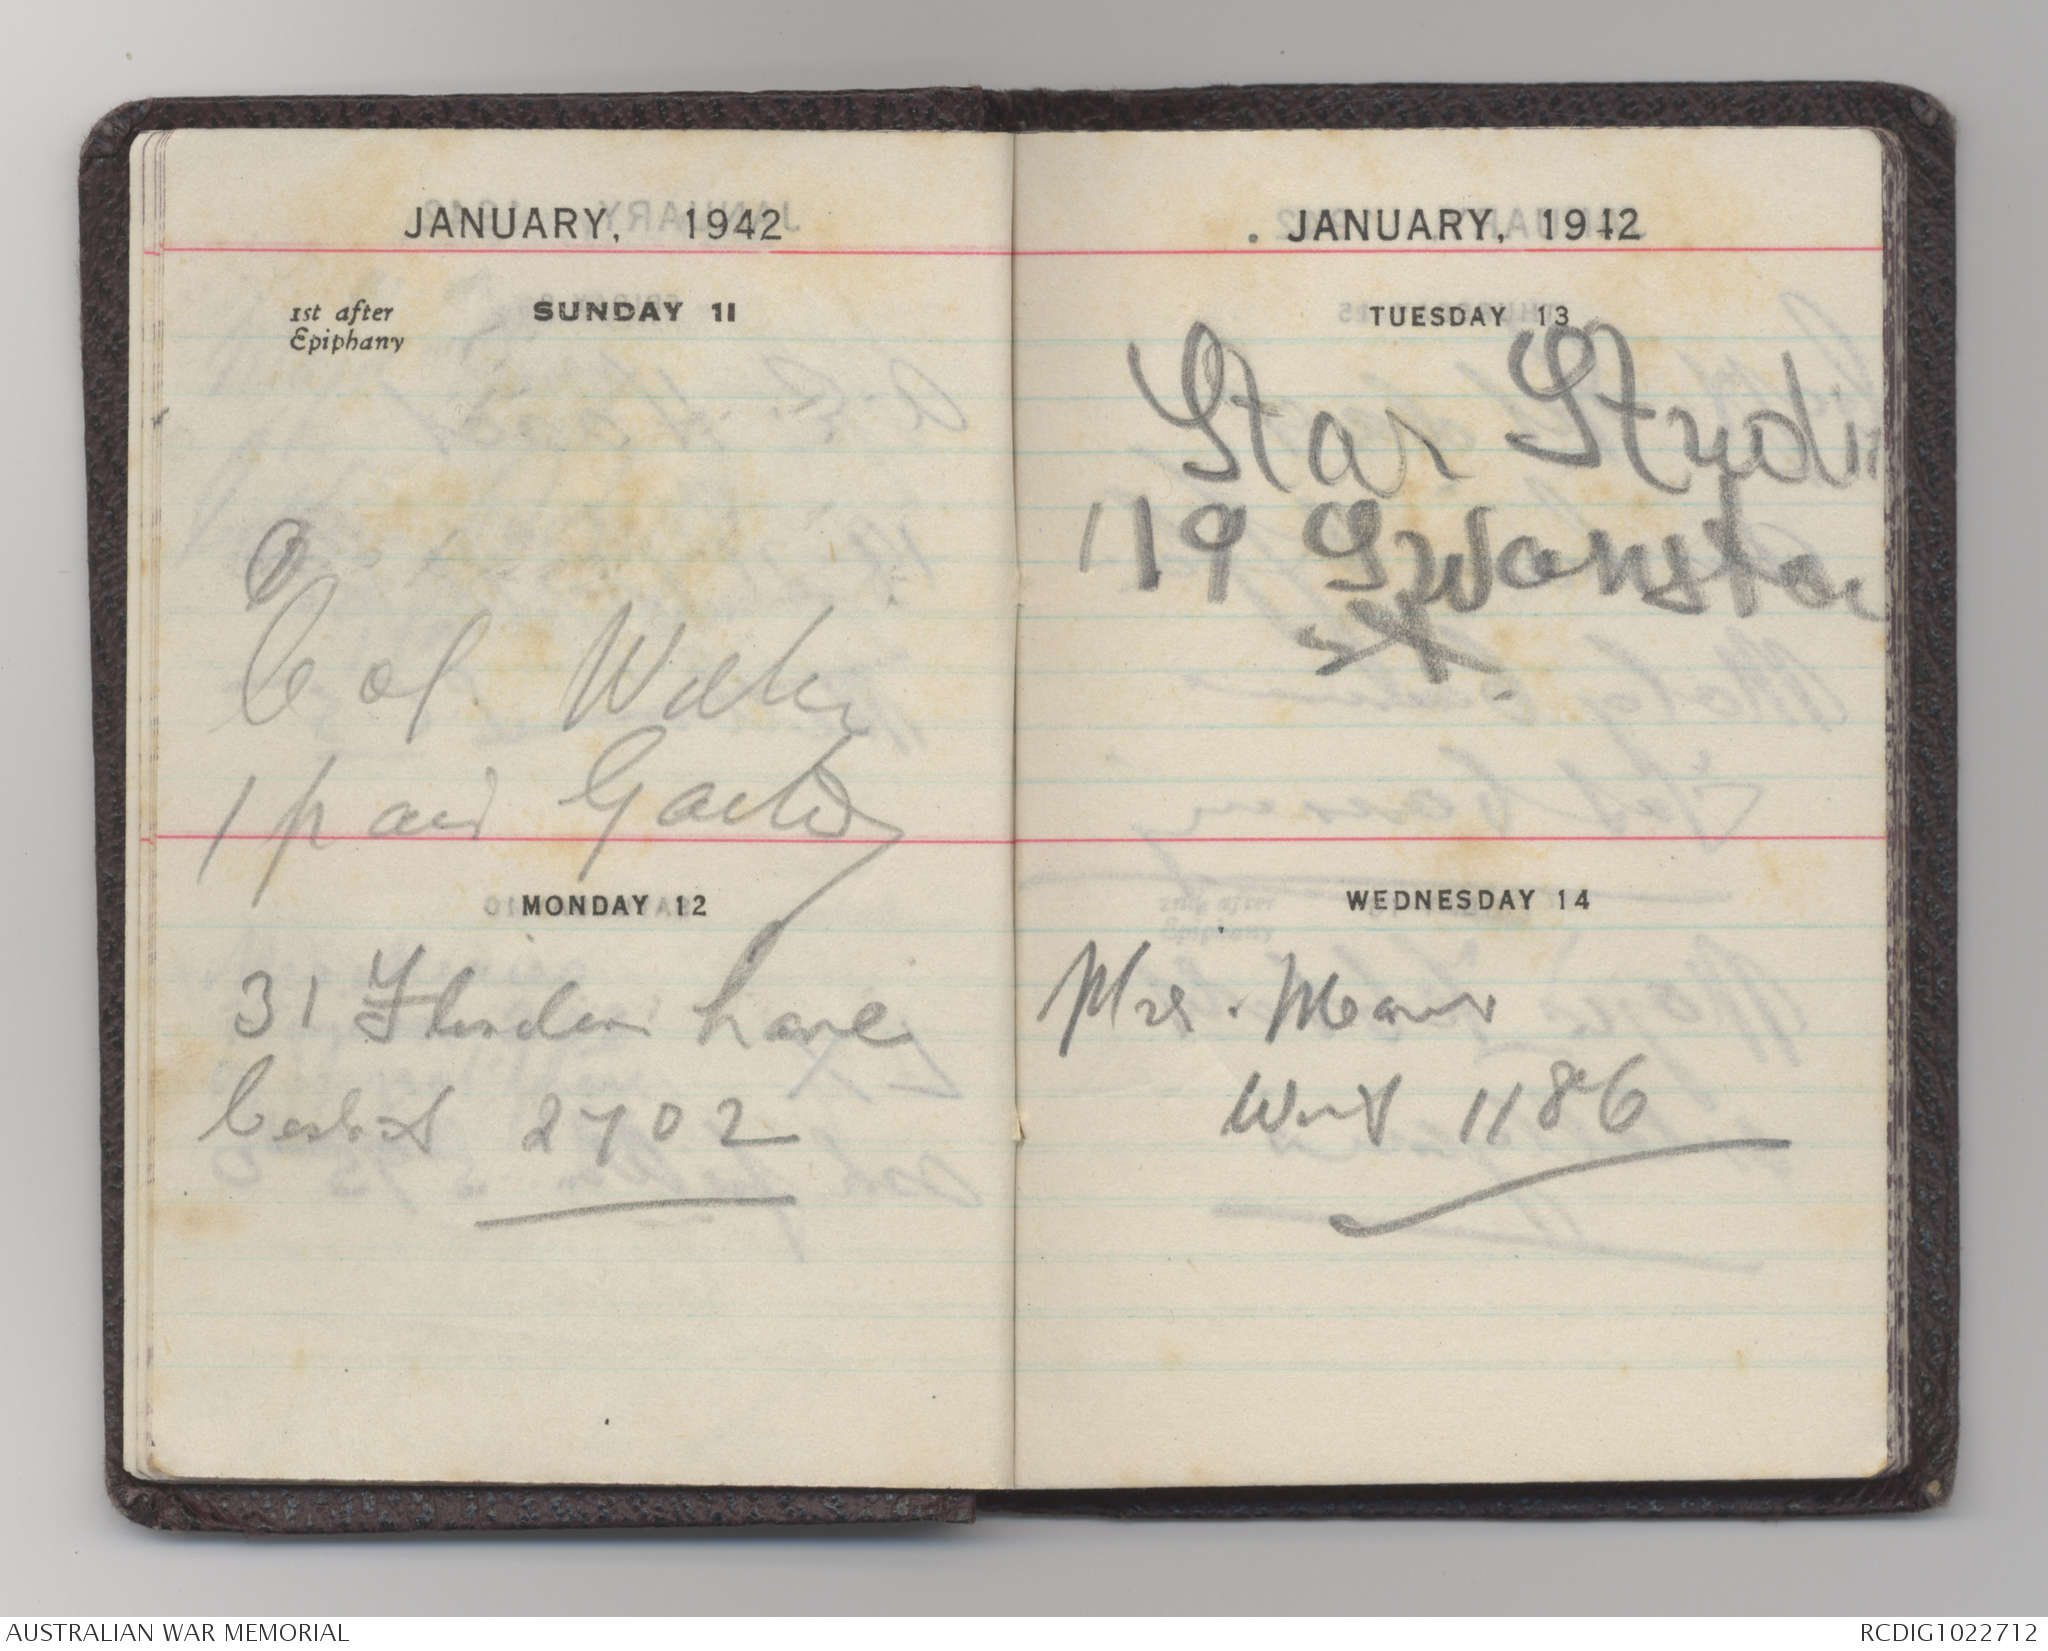 JANUARY, 1942
1st after
Epiphany
SUNDAY 11
Col Wilkie
1 pair
MONDAY 12
31 Flinders Lane
Central 2702
JANUARY, 1942
TUESDAY 13
Star Studio
119 Swanston
WEDNESDAY 14
Mrs. Mears
1186
AUSTRALIAN WAR MEMORIAL
RCDIG1022712